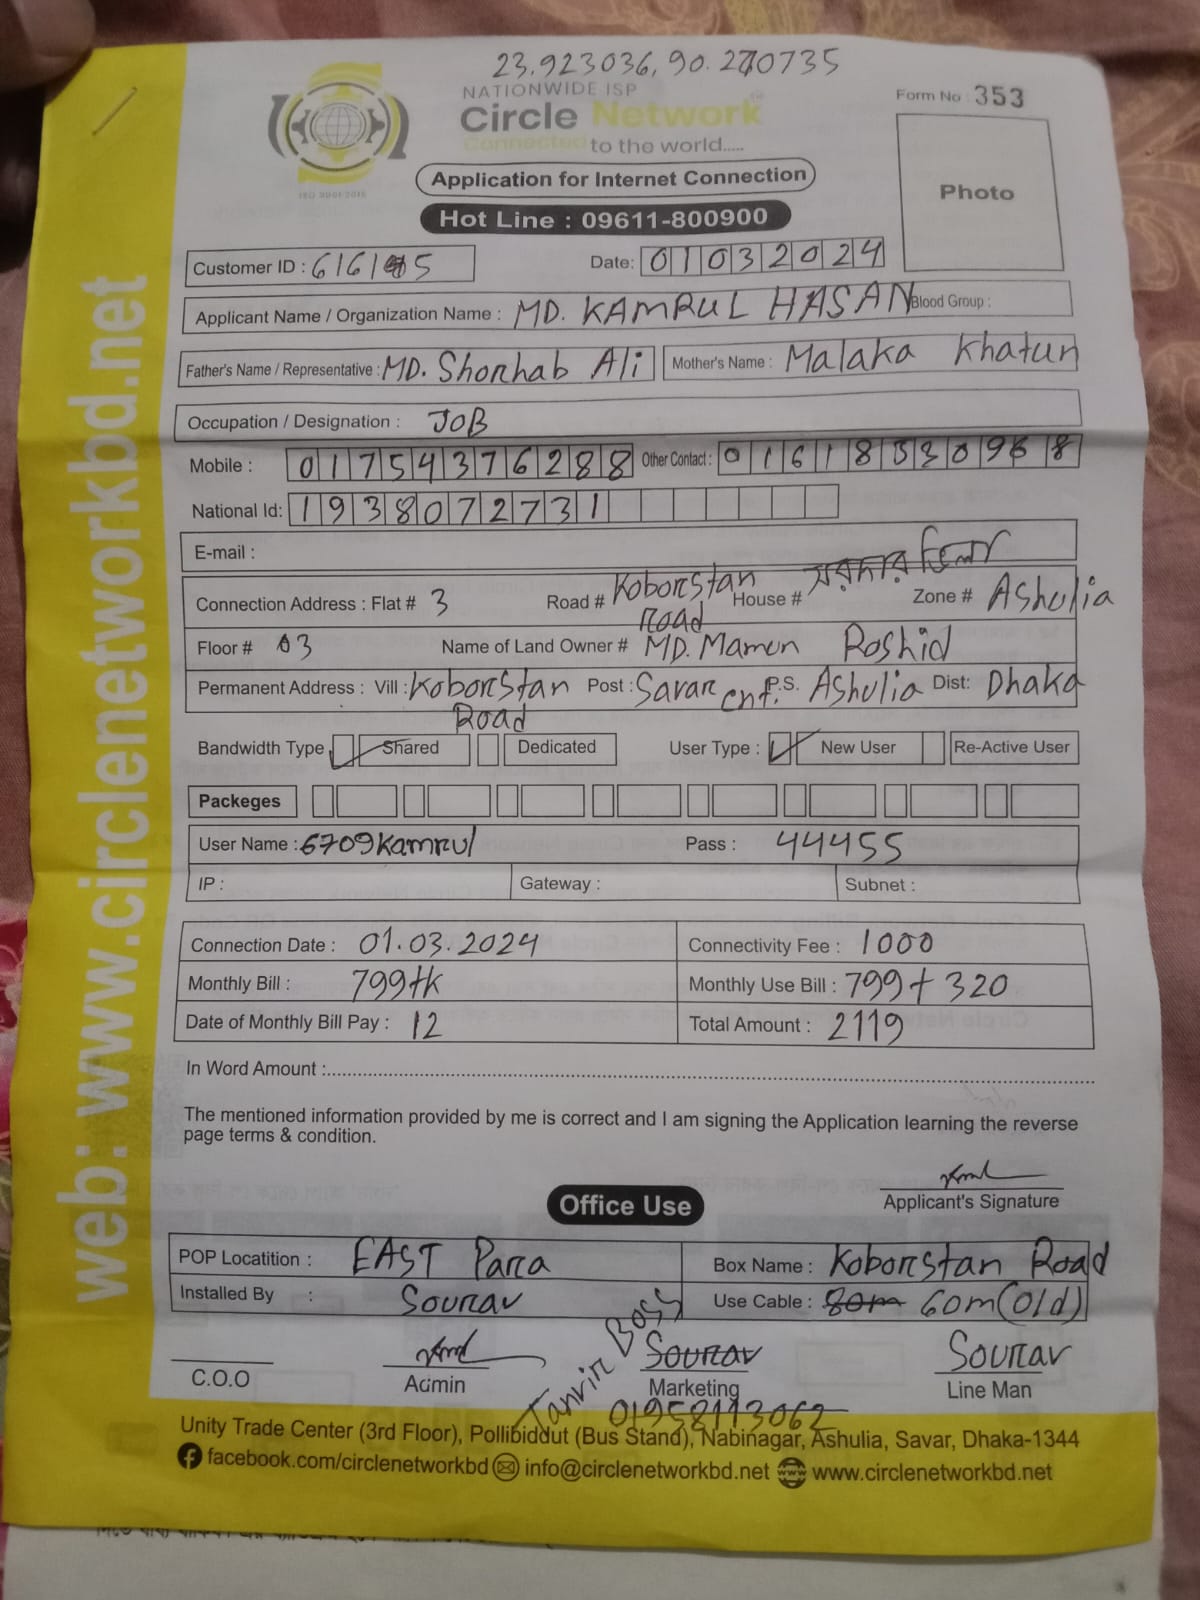 23.923036, 90.270735
NATIONWIDE ISP
Circle Network
Connected to the world.....
ISO 9001:2015
Form No : 353
Photo
Application for Internet Connection
Hot Line : 09611-800900
Customer ID : 6161 5
Date: 01032024
Applicant Name / Organization Name : MD. KAMRUL HASAN Blood Group :
Father's Name / Representative : MD. Shorhab Ali Mother's Name : Malaka Khatun
Occupation / Designation : JOB
Mobile : 01754376288 Other Contact :
National Id: 1938072731
E-mail :
Connection Address : Flat # 3 Road # Koborstan Road House # সরদার Zone # Ashulia
Floor # 03 Name of Land Owner # MD. Mamun Roshid
Permanent Address : Vill : Koborstan Road Post : Savar Cnt. P.S. Ashulia Dist: Dhaka
Bandwidth Type Shared Dedicated User Type : New User Re-Active User
Packeges
User Name : 6709Kamrul Pass : 44455
IP : Gateway : Subnet :
Connection Date : 01.03.2024 Connectivity Fee : 1000
Monthly Bill : 799tk Monthly Use Bill : 799+320
Date of Monthly Bill Pay : 12 Total Amount : 2119
In Word Amount :
The mentioned information provided by me is correct and I am signing the Application learning the reverse
page terms & condition.
Applicant's Signature
Office Use
POP Locatition : EAST Para Box Name : Koborstan Road
Installed By : Sourav Use Cable : 80m 60m(old)
Tanvir Boss
Sourav Sourav
C.O.O Admin Marketing Line Man
01958113062
Unity Trade Center (3rd Floor), Pollibiddut (Bus Stand), Nabinagar, Ashulia, Savar, Dhaka-1344
facebook.com/circlenetworkbd info@circlenetworkbd.net www.circlenetworkbd.net
web: www.circlenetworkbd.net